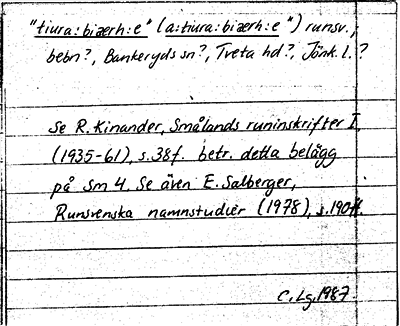 "tiura:biærh:e" (a:tiura:biærh:e") runsv.,
bebn?, Bankeryds sn?, Tveta hd?, Jönk. l.?
Se R. Kinander, Smålands runinskrifter I,
(1935-61), s. 38f. betr. detta belägg
på Sm 4. Se även E. Salberger,
Runsvenska namnstudier (1978), s. 190ff.
C. Lg. 1987.